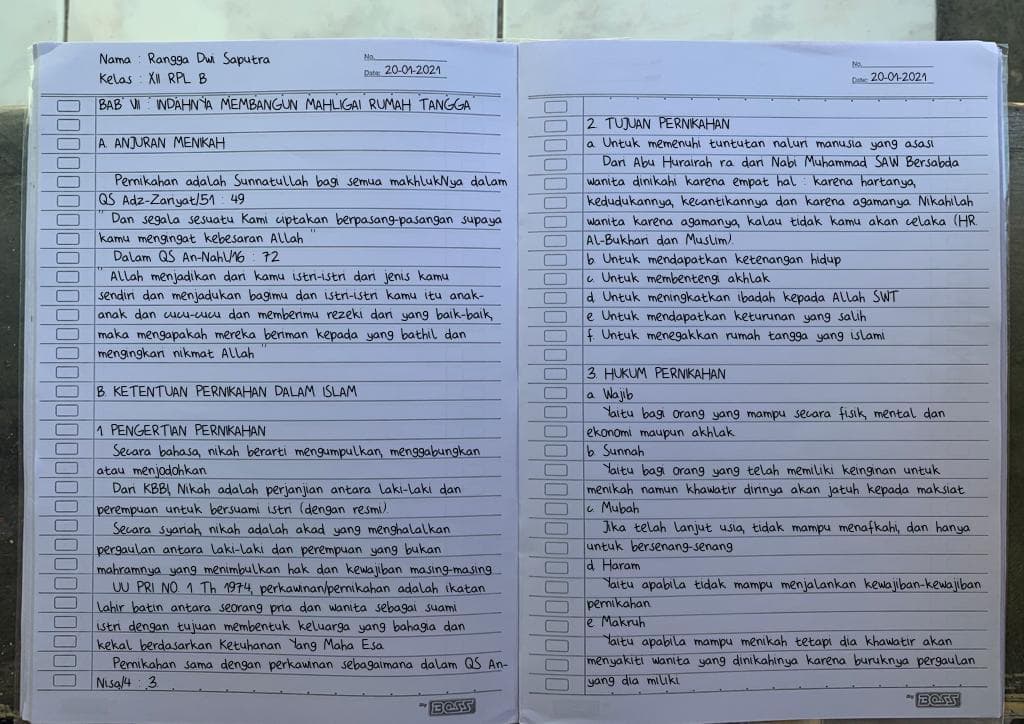 Nama : Rangga Dwi Saputra
Kelas : XII RPL B
No.
Date: 20-01-2021
BAB VII : INDAHNYA MEMBANGUN MAHLIGAI RUMAH TANGGA
A. ANJURAN MENIKAH
Pernikahan adalah Sunnatullah bagi semua makhlukNya dalam
QS Adz-Zariyat/51 : 49
" Dan segala sesuatu Kami ciptakan berpasang-pasangan supaya
kamu mengingat kebesaran Allah "
Dalam QS An-Nahl/16 : 72
" Allah menjadikan dari kamu istri-istri dari jenis kamu
sendiri dan menjadukan bagimu dan istri-istri kamu itu anak-
anak dan cucu-cucu dan memberimu rezeki dari yang baik-baik,
maka mengapakah mereka beriman kepada yang bathil dan
mengingkari nikmat Allah "
B. KETENTUAN PERNIKAHAN DALAM ISLAM
1. PENGERTIAN PERNIKAHAN
Secara bahasa, nikah berarti mengumpulkan, menggabungkan
atau menjodohkan
Dari KBBI, Nikah adalah perjanjian antara laki-laki dan
perempuan untuk bersuami istri (dengan resmi).
Secara syariah, nikah adalah akad yang menghalalkan
pergaulan antara laki-laki dan perempuan yang bukan
mahramnya yang menimbulkan hak dan kewajiban masing-masing
UU PRI NO. 1 Th 1974, perkawinan/pernikahan adalah ikatan
lahir batin antara seorang pria dan wanita sebagai suami
istri dengan tujuan membentuk keluarga yang bahagia dan
kekal berdasarkan Ketuhanan Yang Maha Esa
Pernikahan sama dengan perkawinan sebagaimana dalam QS An-
Nisa/4 : 3.
By BOSS
No.
Date: 20-01-2021
2. TUJUAN PERNIKAHAN
a. Untuk memenuhi tuntutan naluri manusia yang asasi
Dari Abu Hurairah ra. dari Nabi Muhammad SAW Bersabda
wanita dinikahi karena empat hal : karena hartanya,
kedudukannya, kecantikannya dan karena agamanya Nikahilah
wanita karena agamanya, kalau tidak kamu akan celaka (HR.
Al-Bukhari dan Muslim).
b. Untuk mendapatkan ketenangan hidup
c. Untuk membentengi akhlak
d. Untuk meningkatkan ibadah kepada Allah SWT
e. Untuk mendapatkan keturunan yang salih
f. Untuk menegakkan rumah tangga yang islami
3. HUKUM PERNIKAHAN
a. Wajib
Yaitu bagi orang yang mampu secara fisik, mental dan
ekonomi maupun akhlak
b. Sunnah
Yaitu bagi orang yang telah memiliki keinginan untuk
menikah namun khawatir dirinya akan jatuh kepada maksiat
c. Mubah
Jika telah lanjut usia, tidak mampu menafkahi, dan hanya
untuk bersenang-senang
d. Haram
Yaitu apabila tidak mampu menjalankan kewajiban-kewajiban
pernikahan
e. Makruh
Yaitu apabila mampu menikah tetapi dia khawatir akan
menyakiti wanita yang dinikahinya karena buruknya pergaulan
yang dia miliki
By BOSS